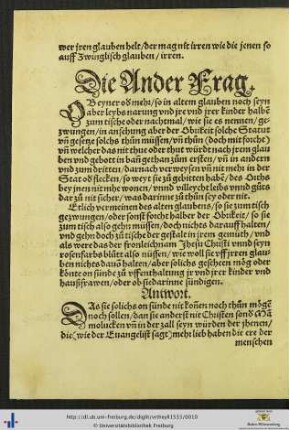 wer jren glauben helt/ der mag nit irren wie die jenen so
auff Zwinglisch glauben/ irren.
Die Ander Frag.
OB eyner ob mehr/ so in altem glauben noch seyn
aber leybs narung vnd jre vnd jrer kinder halbē
zum tische oder nachtmal/ wie sie es nennen/ ge-
zwungen/ in ansehung aber der Obrikeit solche Statut
vñ gesetze solchs thůn müssen/ vñ thůn (doch nit forcht)
vñ welcher das nit thut oder thut würde nach jrem glau
ben vnd gebott in ban gethan zům ersten/ vñ in andern
vnd zum dritten/ darnach verweysen vñ nit mehr in der
Stat
bey jnen nit mehr wonen/ vnnd villeycht leibs vnnd gůts
dar zů nit sicher/ was darinne zů thůn sey oder nit.
Etlich vermeinen des alten glaubens/ so sie zum tisch
gezwungen/ oder sonst forcht halber der Obrikeit/ so sie
zum tisch also gehn müssen/ doch nichts darauff halten/
vnd gehn doch zů tische der gestalt in jrem gemüth/ vnd
als were das der fronleichnam Jhesu Christi vnnd seyn
rosenfarbs blůtt also müssen/ wie woll sie vff jrem glau-
ben nichts dauō halten/ aber solichs geschehen mög oder
könt on sünde zů vffenthaltung jr vnd jrer kinder vnd
haußfrawen/ oder ob sie darinne sündigen.
Antwort.
DAs sie solichs on sünde nit künen noch thůn mögē
noch sollen/ dan sie anderst nit Christen sond Ma
molucken vñ in der zall seyn würden der jhenen/
die (wie der Euangelist sagt) mehr lieb haben die ere der
menschen
http://dl.ub.uni-freiburg.de/diglit/rothey81531/0010
© Universitätsbibliothek Freiburg